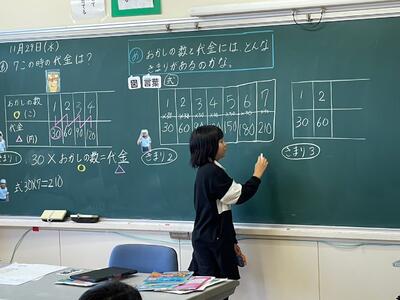 11月29日(水)
7この時の代金は?
め おかしの数と代金には、どんなきまりがあるのかな。
図 言葉 式
おかしの数(こ) 1 2 3 4
代金(円) 30 60 90
1 2 3 4 5 6 7
30 60 90 120 150 180 210
1 2
30 60
きまり1
30×おかしの数=代金
きまり2
きまり3
式30×7=210